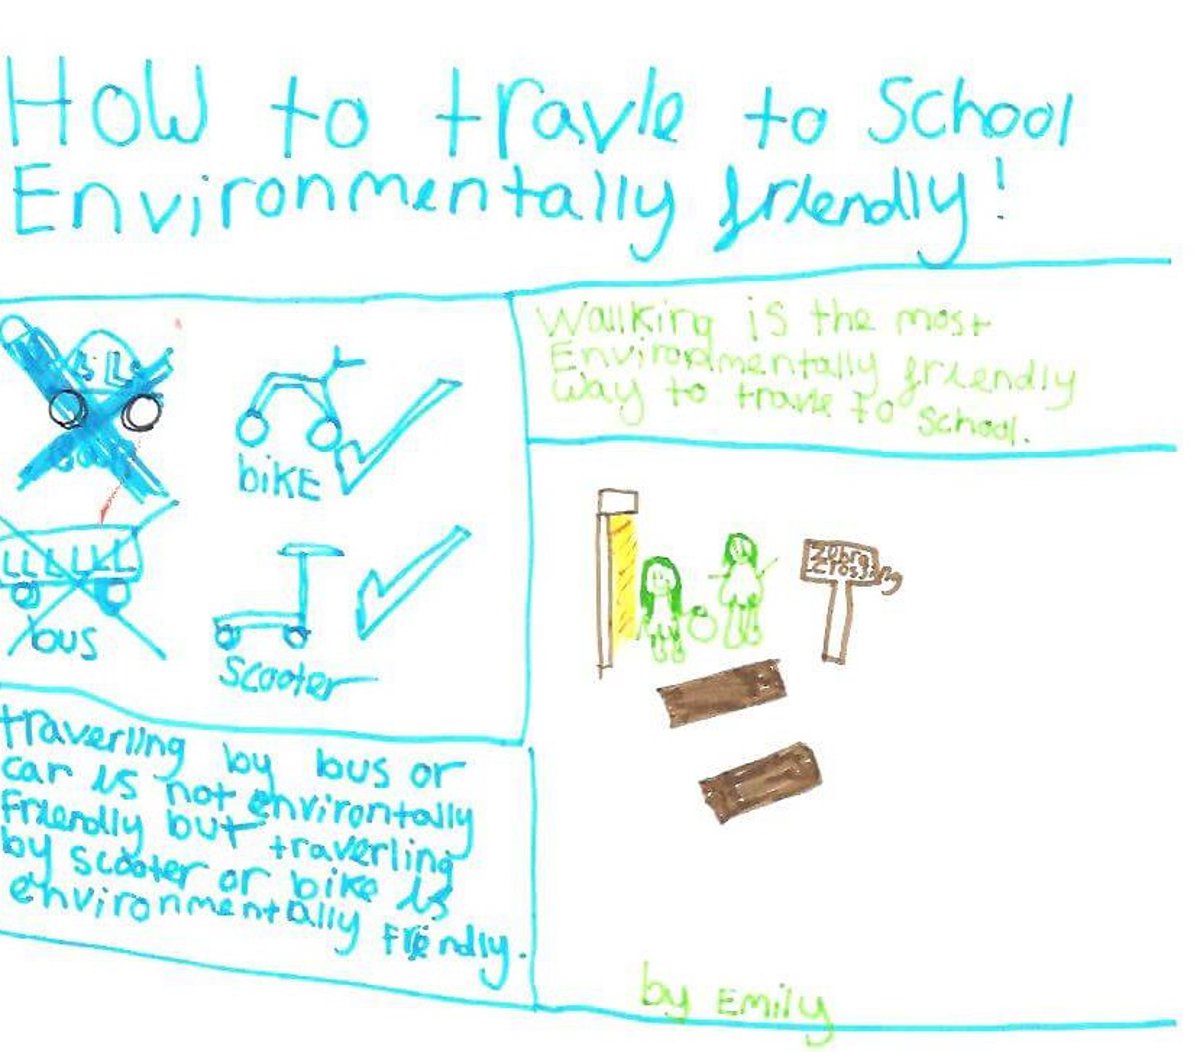 How to travle to School
Environmentally friendly!
Wallking is the most
Environdmentally friendly
way to travle to school.
bike
bus
scooter
Zebra
Crossing
traverling by bus or
car is not environtally
Friendly but traverling
by scooter or bike is
environmentally Friendly.
by Emily